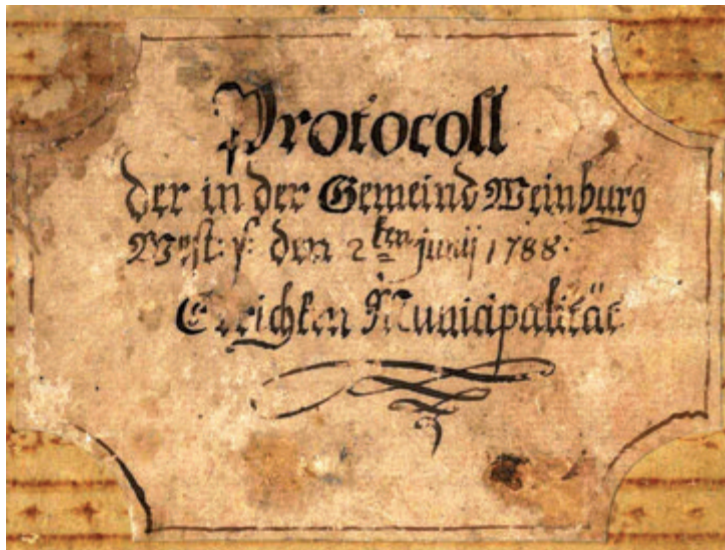 Protocoll
der in der Gemeind Weinburg
West: f: den 2ten junij 1788.
Errichten Municipalität